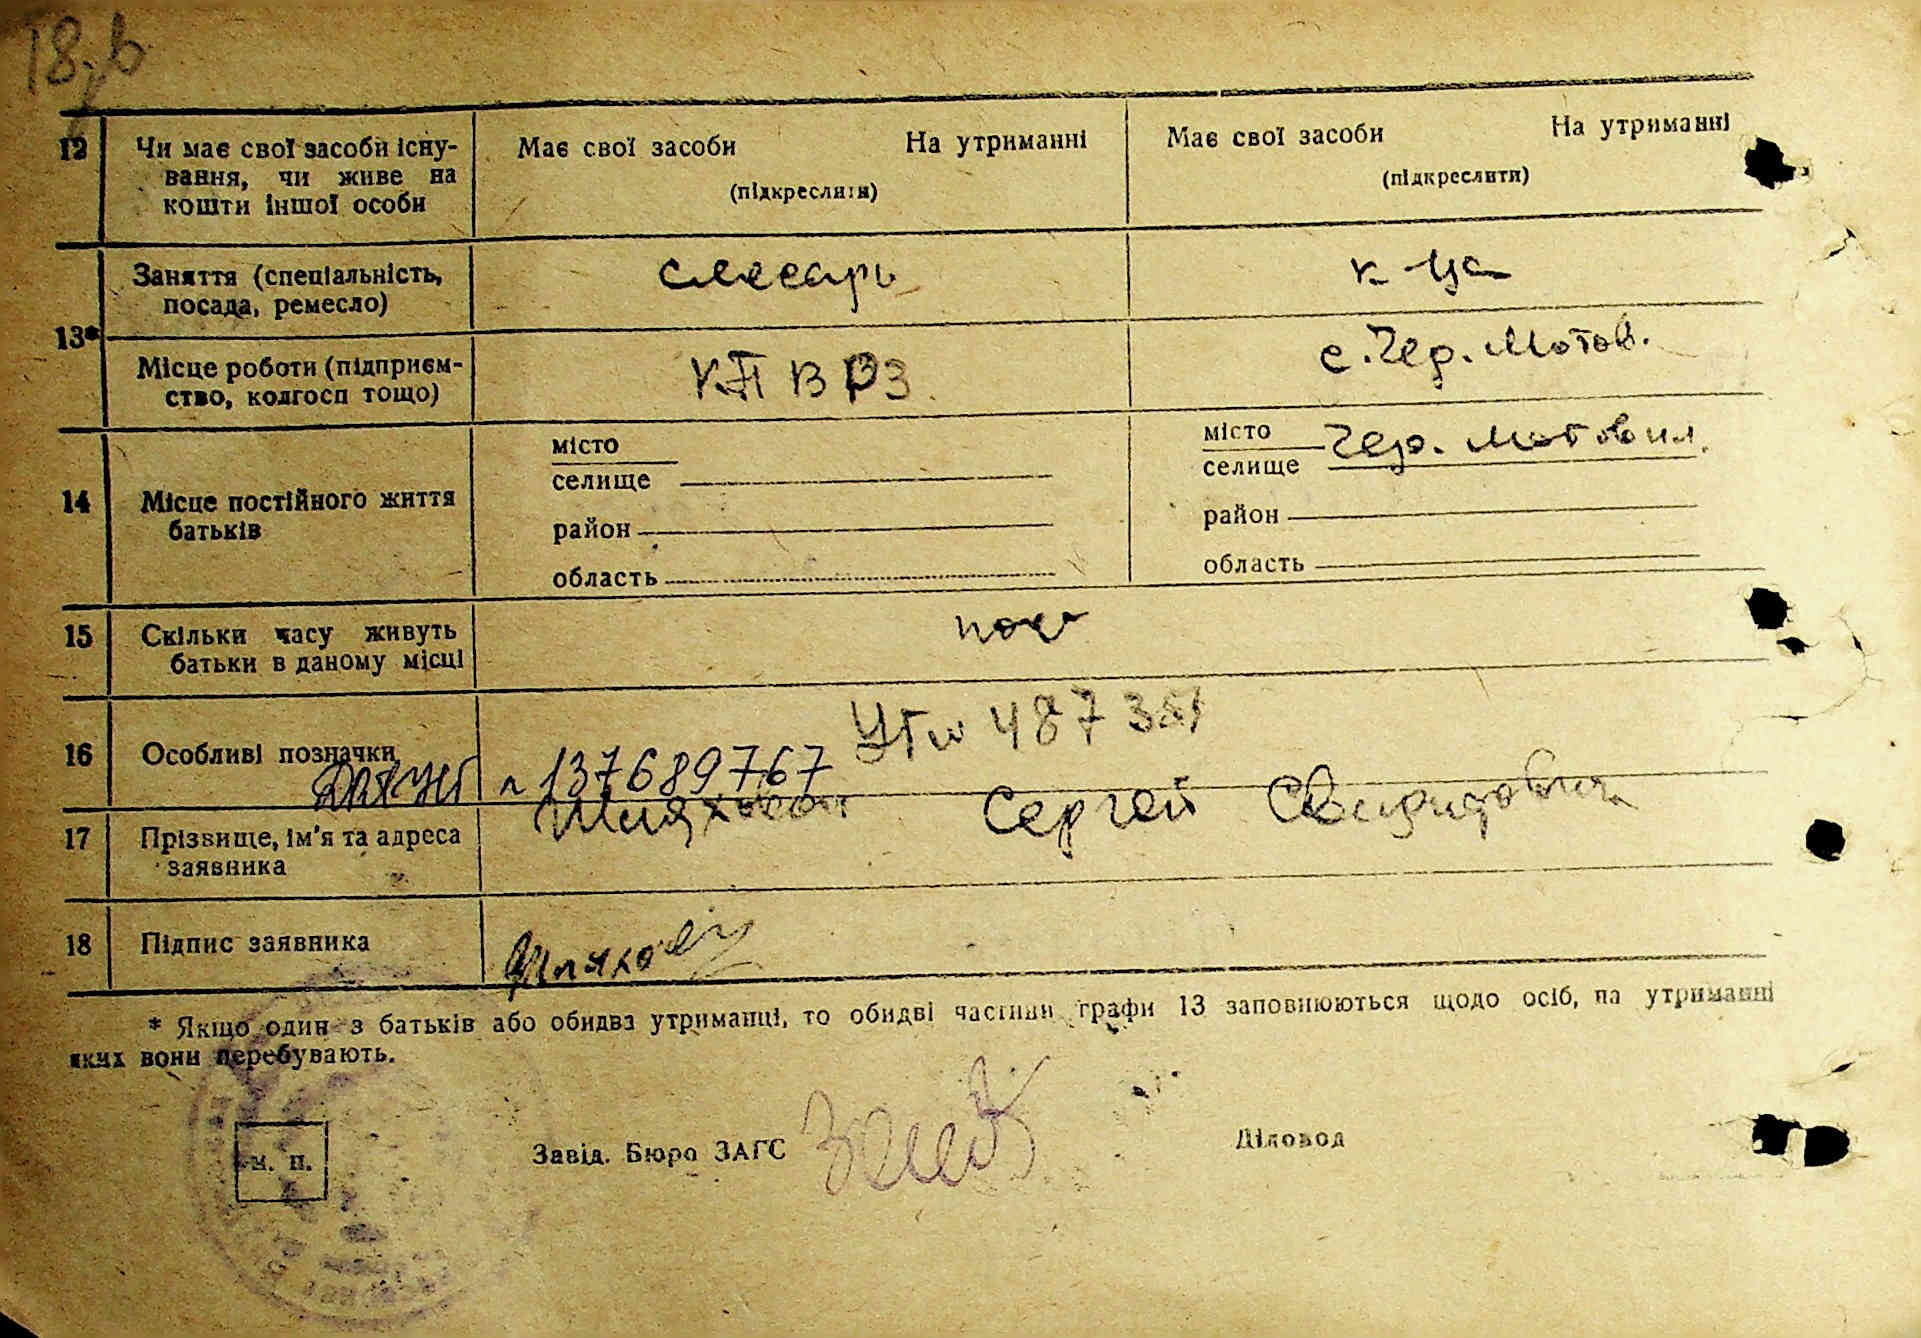 18
12 Чи має свої засоби існу-
вання, чи живе на
кошти іншої особи
Має свої засоби На утриманні
(підкреслити)
Має свої засоби На утриманні
(підкреслити)
13*
Заняття (спеціальність,
посада, ремесло)
слесарь
к-ца
Місце роботи (підприєм-
ство, колгосп тощо)
КПВРЗ
с. Чер. Мотов.
14 Місце постійного життя
батьків
місто
селище
район
область
місто Чер. Мотовил.
селище
район
область
15 Скільки часу живуть
батьки в даному місці
16 Особливі позначки
487351
137689767
17 Прізвище, ім'я та адреса
заявника
Сергей
18 Підпис заявника
* Якщо один з батьків або обидва утриманці, то обидві частини графи 13 заповнюються щодо осіб, на утриманні
яких вони перебувають.
М. П.
Завід. Бюро ЗАГС
Діловод